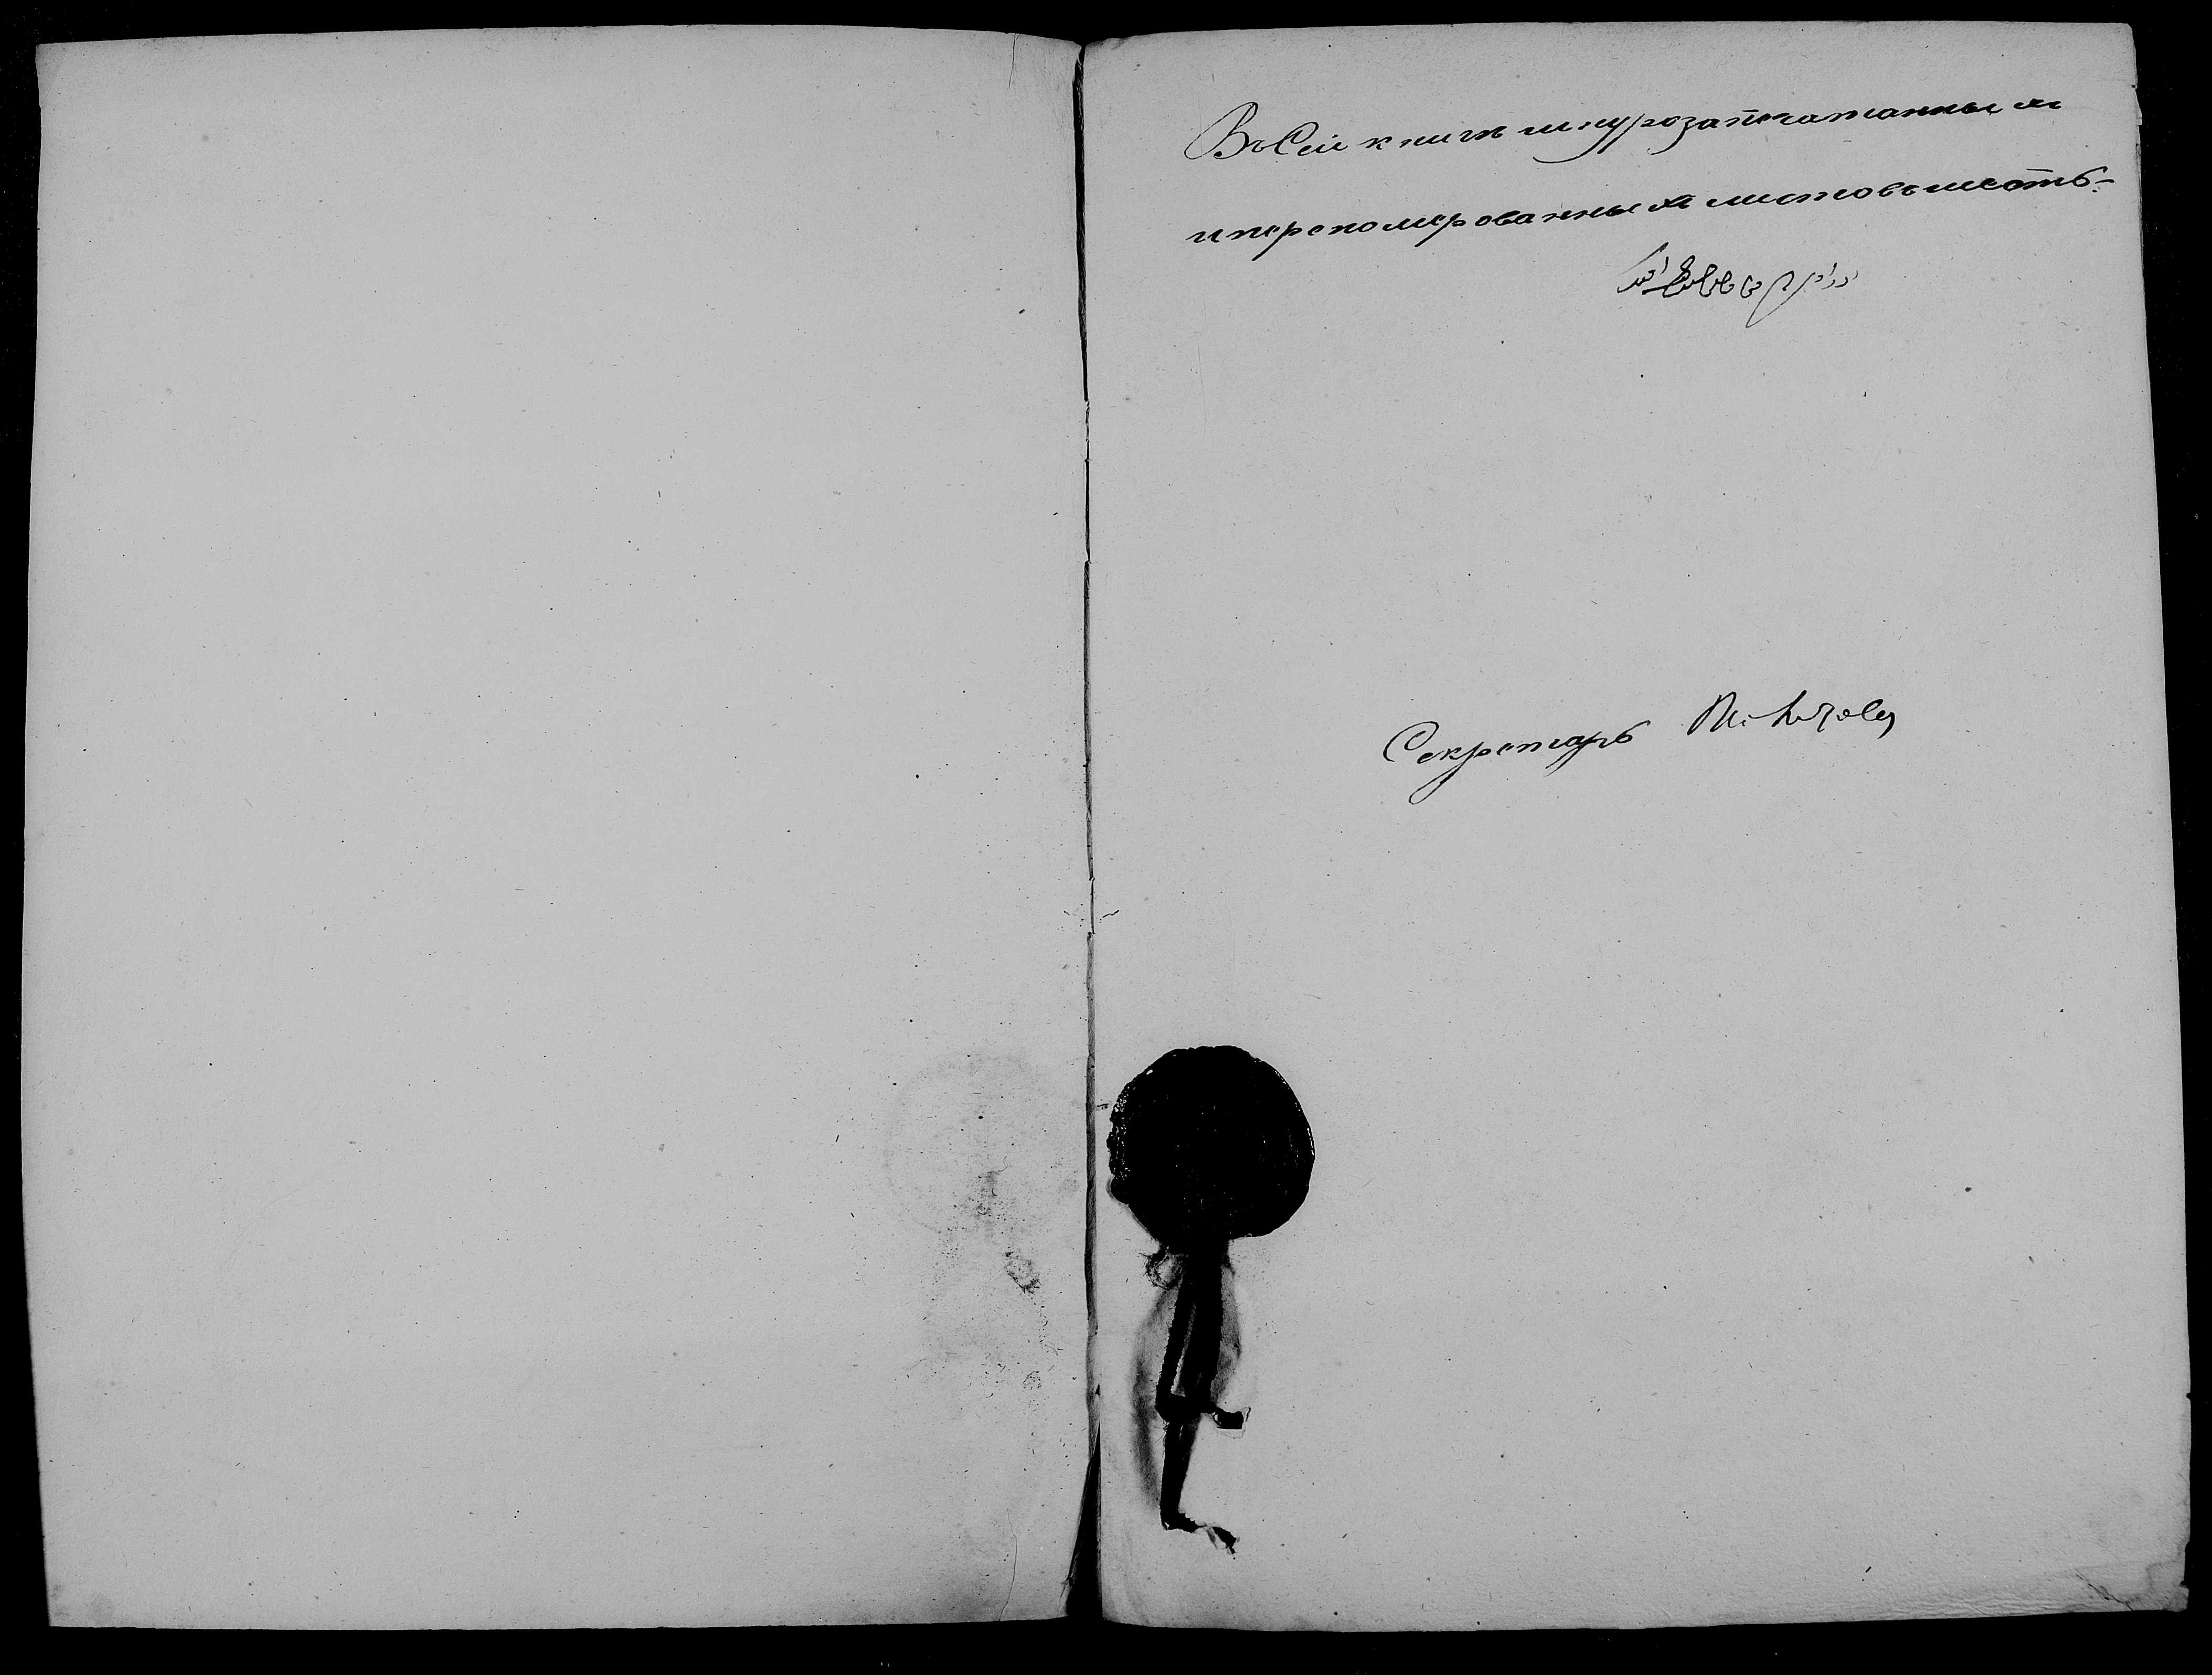 Въ Сей книгѣ шнурозапечатанныхъ
и переномерованныхъ листовъ шесть
Секретарь